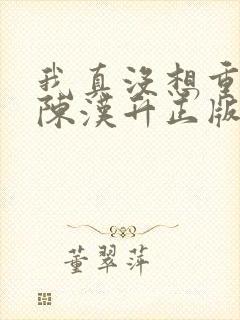 我真沒想重
陳漢升正版
董翠萍